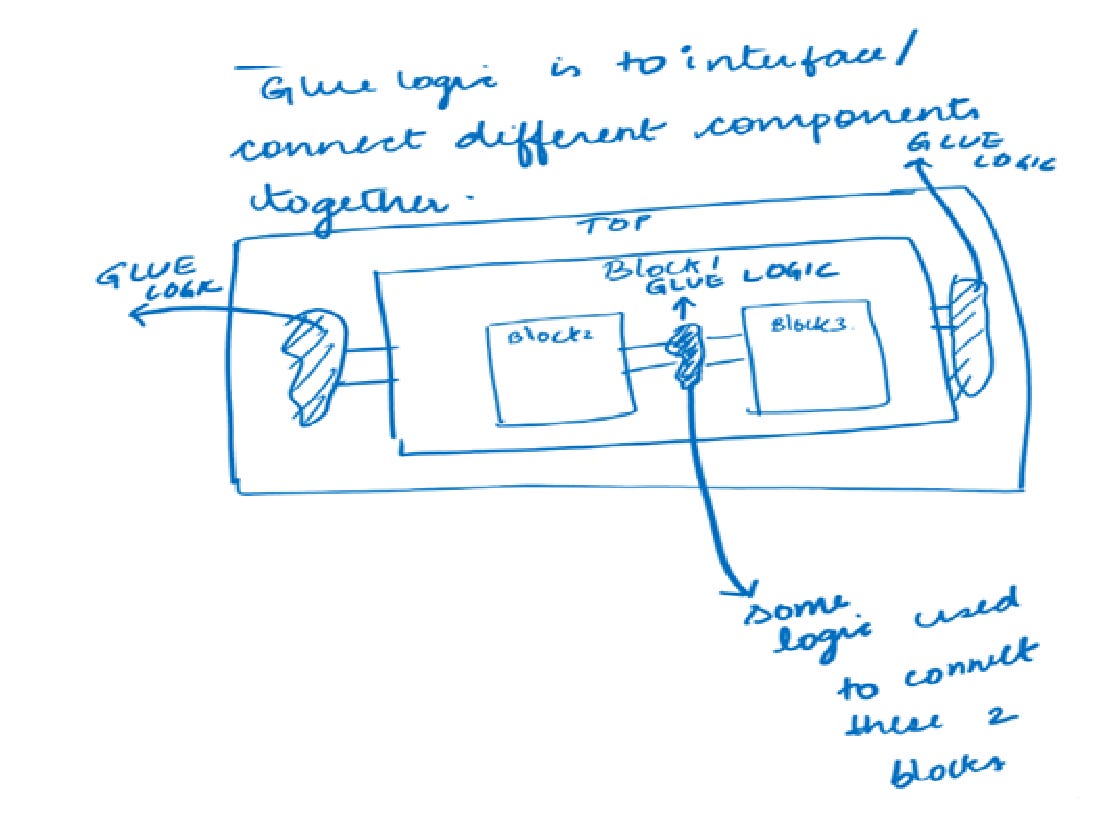 Glue logic is to interface/
connect different components
together.
GLUE
LOGIC
TOP
GLUE
LOGIC
Block1
GLUE LOGIC
Block2
Block3.
some
logic used
to connect
these 2
blocks